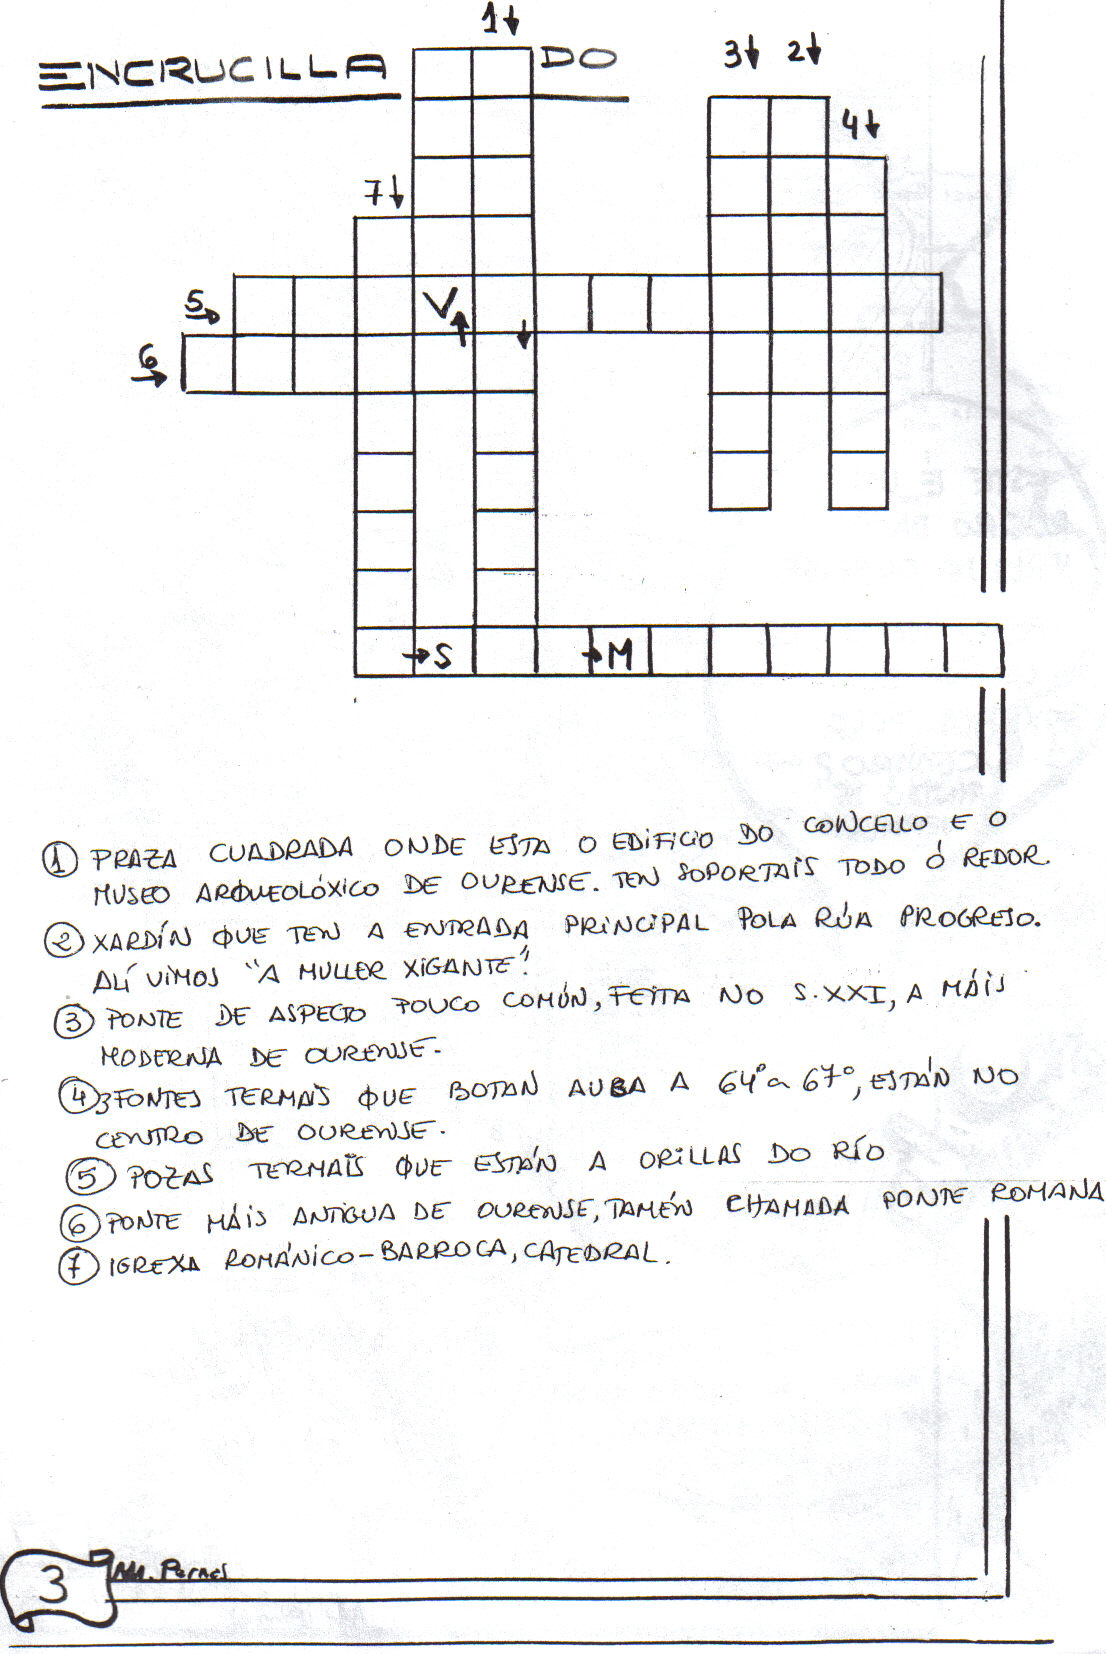 1↓
ENCRUCILLA DO
3↓ 2↓
4↓
7↓
5→
V↑ ↓
6→
→S →M
① PRAZA CUADRADA ONDE ESTA O EDIFICIO DO CONCELLO E O
MUSEO ARQUEOLÓXICO DE OURENSE. TEN SOPORTAIS TODO Ó REDOR.
② XARDÍN QUE TEN A ENTRADA PRINCIPAL POLA RÚA PROGRESO.
ALÍ VIMOS "A MULLER XIGANTE".
③ PONTE DE ASPECTO POUCO COMÚN, FEITA NO S.XXI, A MÁIS
MODERNA DE OURENSE.
④ 3 FONTES TERMAIS QUE BOTAN AUGA A 64º a 67º, ESTÁN NO
CENTRO DE OURENSE.
⑤ POZAS TERMAIS QUE ESTÁN A ORILLAS DO RÍO
⑥ PONTE MÁIS ANTIGUA DE OURENSE, TAMÉN CHAMADA PONTE ROMANA
⑦ IGREXA ROMÁNICO-BARROCA, CATEDRAL.
3